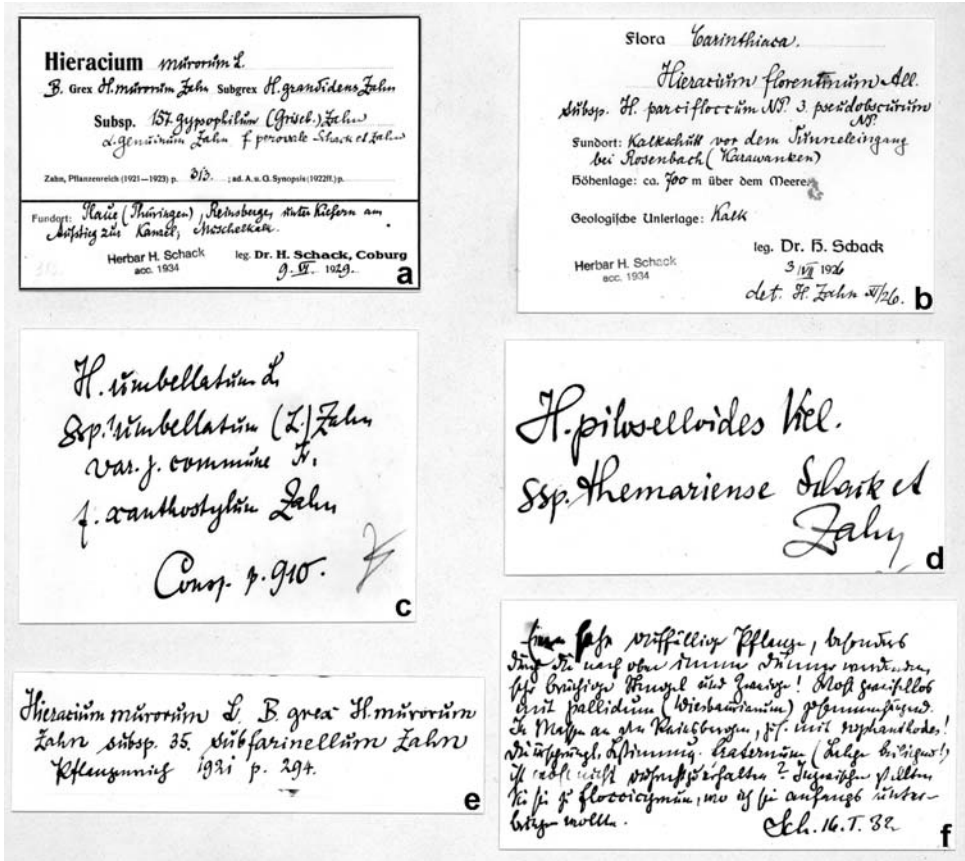 Hieracium murorum L.
B. Grex H. murorum Zahn Subgrex H. grandidens Zahn
Subsp. 157. gypsophilum (Griseb.) Zahn
α. genuinum Zahn f. perovale Schack et Zahn
Zahn, Pflanzenreich (1921—1923) p. 313. ; ad. A. u. G. Synopsis (1922ff.) p.
Fundort: Plaue (Thüringen), Reinsberge, unter Kiefern am
Aufstieg zur Kanzel, Muschelkalk.
Herbar H. Schack
acc. 1934
leg. Dr. H. Schack, Coburg
9. VI. 1929.
a
Flora Carinthiaca.
Hieracium florentinum All.
subsp. H. parcifloccum NP. 3. pseudobscurum
NP.
Fundort: Kalkschutt vor dem Tunneleingang
bei Rosenbach (Karawanken)
Höhenlage: ca. 700 m über dem Meere.
Geologische Unterlage: Kalk
leg. Dr. H. Schack
Herbar H. Schack
acc. 1934
3/VII 1926
det. H. Zahn XI/26.
b
H. umbellatum L.
Ssp. umbellatum (L.) Zahn
var. j. commune Fr.
f. xanthostylum Zahn
Consp. p. 910.
c
H. piloselloides Vill.
ssp. themariense Schack et
Zahn
d
Hieracium murorum L. B. grex H. murorum
Zahn subsp. 35. subfarinellum Zahn
Pflanzenreich 1921 p. 294.
e
Eine sehr auffällige Pflanze, besonders
durch die nach oben immer dünner werdenden,
sehr brüchige Stengel und Zweige! Wohl zweifellos
mit pallidum (Wiesbaurianum) zusammenhängend.
In Massen an den Reinsbergen, zus. mit
Die ursprüngl. Bestimmung fraternum (
ist wohl nicht aufrechtzuerhalten? Inzwischen stellten
Sie sie zu floccicymum, wo ich sie anfangs unter-
bringen wollte.
Sch. 16. I. 32.
f